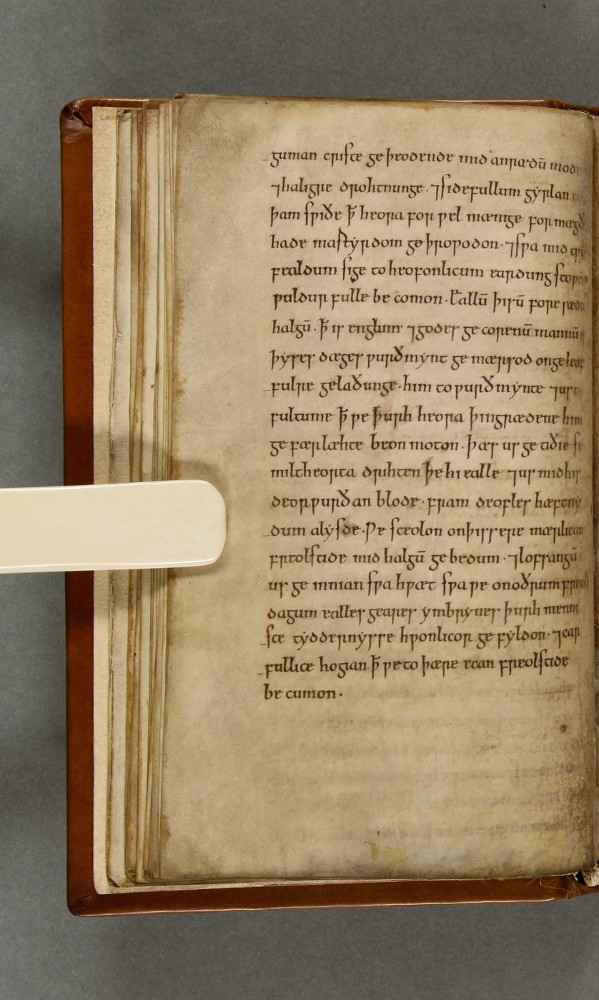 guman criste ge þeodende mid anrædū mod
⁊ haligre drohtnunge. ⁊ sidefullum gyrlan
þam swiðe ꝥ heora for wel mænige for mægð
hade martyrdom ge þrowodon. ⁊ swa mid
fealdum sige to heofonlicum eardung stow
wuldur fulle be comon. Eallū þisū fore sæd
halgū. ꝥ is englum ⁊ godes ge corenū mannū
þyses dæges wurðmynt ge mærsod on geleaf
fulre gelaðunge. him to wurðmynte ⁊ us
fultume ꝥ we þurh heora þingrædene him
ge færlæhte beon moton. þæs us ge tidie se
mildheorta drihten þe hi ealle ⁊ us mid his
deorwurðan blode. fram deofles hæftny
dum alysde. We sceolon on þissere mærlican
freolstide mid halgū ge bedum. ⁊ lofsangū
us ge innian swa hwæt swa we on oðrum freols
dagum ealles geares ymbrynes þurh menni
sce tyddernysse hwonlicor ge fyldon. ⁊ carr
fullice hogian ꝥ we to þære ecan freolstide
be cumon.